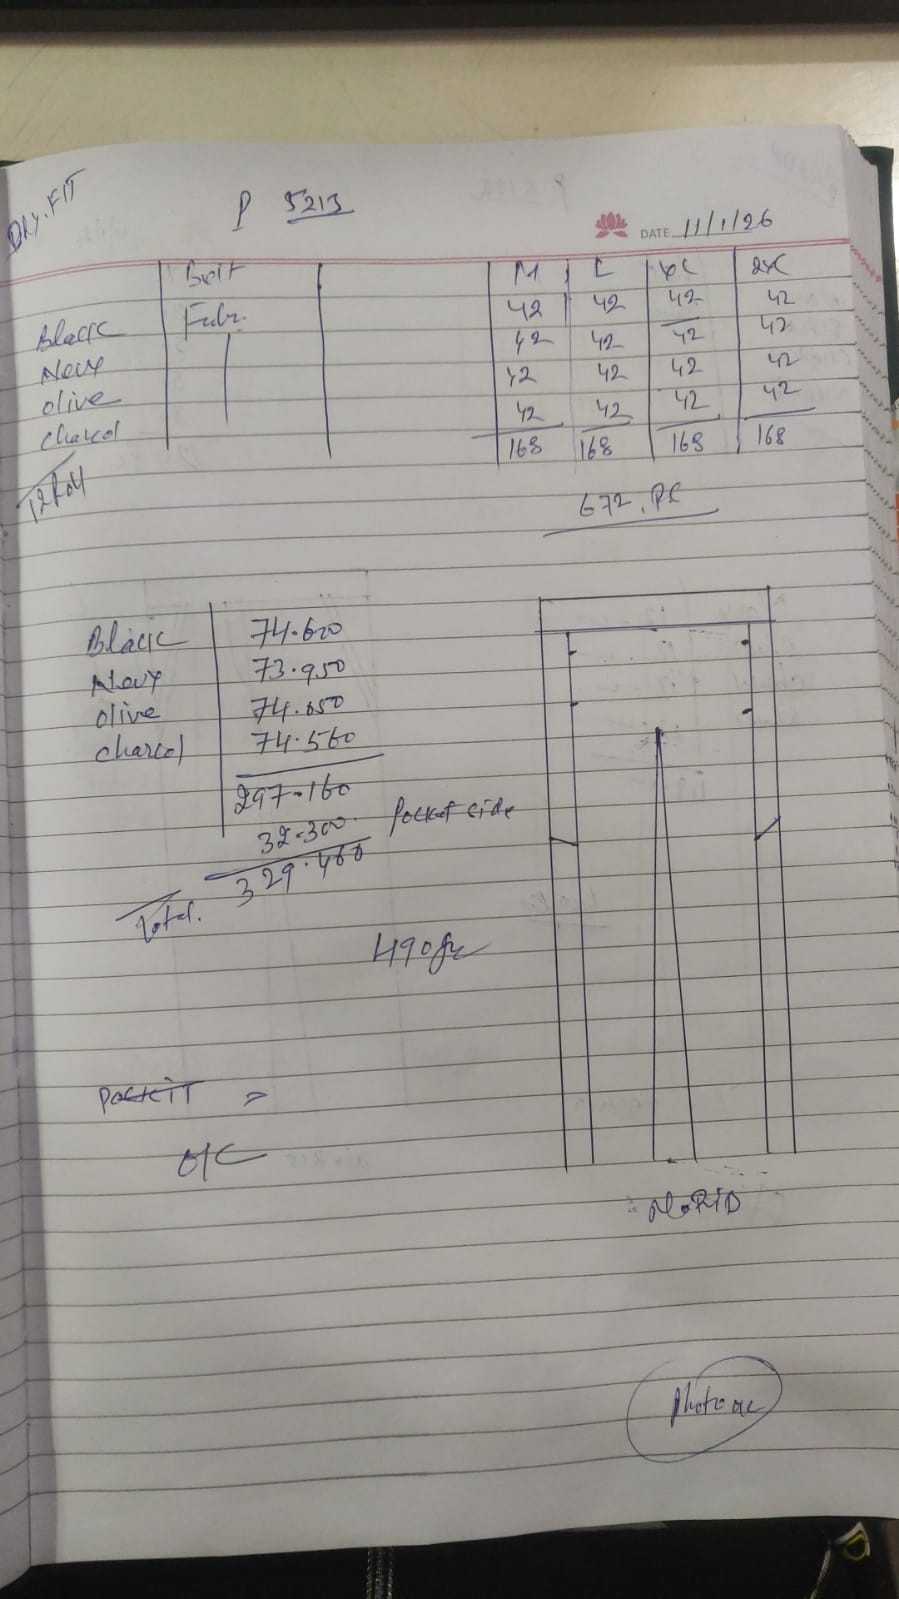 DRY.FIT
P 5213
DATE 11/1/26
Belt M L XL 2XL
Black Fabr. 42 42 42 42
Navy 42 42 42 42
olive 42 42 42 42
charcol 42 42 42 42
168 168 168 168
12 Roll
672. PC
Black 74.600
Navy 73.950
olive 74.050
charcol 74.560
297.160
32.300. Pocket side
Total. 329.460
490 gr
POCKIT =
O/C